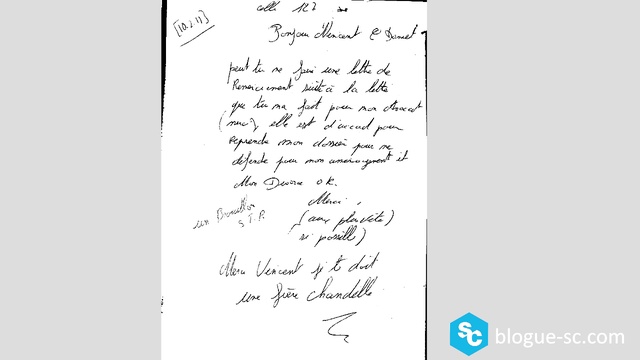 [10.2.11]
cell 122
Bonjour Vincent & Daniel
peut tu me faire une lettre de
Remerciement suite à la lettre
que tu ma fait pour mon Avocat
(merci), elle est d'accord pour
reprendre mon dossier pour me
défendre pour mon et
Mon Divorce OK.
un Brouillon
S.T.P.
Merci,
(aux plus vite)
si possible)
Merci Vincent je te doit
une fière chandelle
SC blogue-sc.com